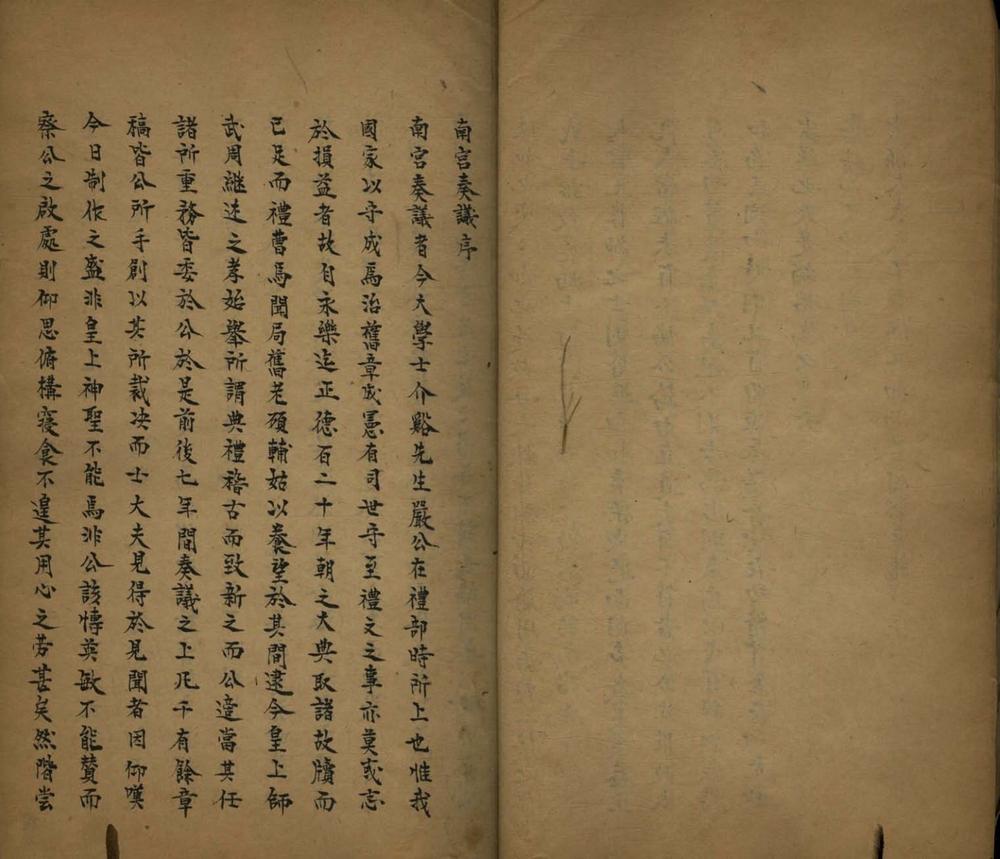 南宫奏議序
南宫奏議者今大學士介谿先生嚴公在禮部時所上也惟我
國家以守成爲治舊章成憲有司世守至禮文之事亦莫或忘
於損益者故自永樂迄正德百二十年朝之大典取諸故牘而
已足而禮曹爲閒局舊老碩輔姑以養望於其間逮今皇上師
武周繼述之孝始舉所謂典禮稽古而致新之而公適當其任
諸所重務皆委於公於是前後七年間奏議之上凡千有餘章
稿皆公所手創以其所裁决而士大夫見得於見聞者因仰嘆
今日制作之盛非皇上神聖不能爲非公該愽英敏不能賛而
察公之啟處則仰思俯構寝食不遑其用心之劳甚矣然階尝